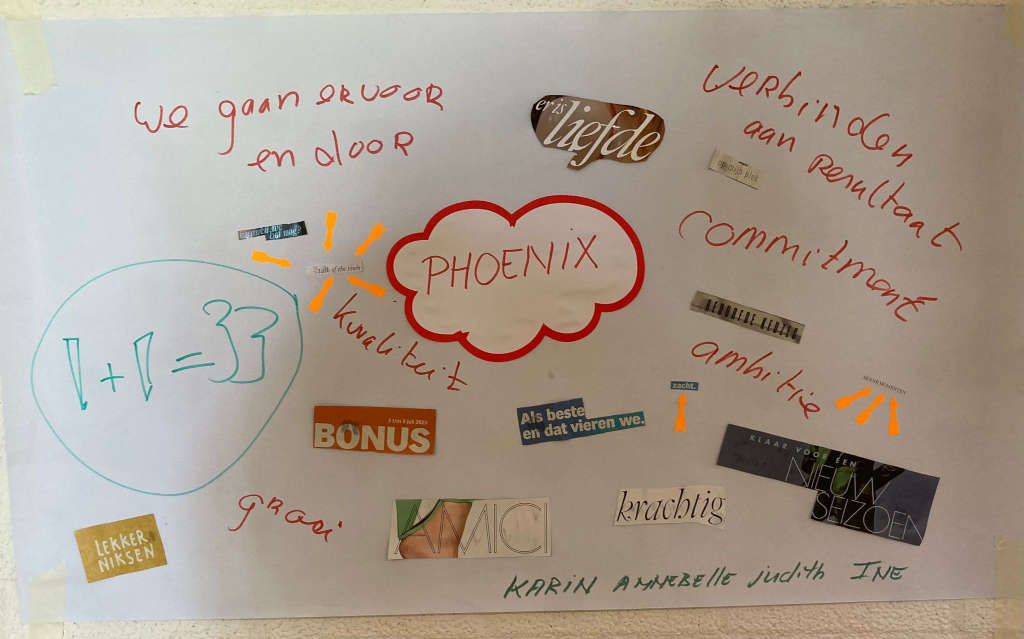 We gaan ervoor
en door
er is
liefde
verbinden
aan Resultaat
op zijn plek
Commitment
talk of the town
PHOENIX
Kwaliteit
GEBOREN
ambitie
1+1=33
zacht.
BONUS
Als beste
en dat vieren we.
KLAAR VOOR EEN
NIEUW
SEIZOEN
groei
AMICI
krachtig
LEKKER
NIKSEN
KARIN ANNEBELLE judith INE